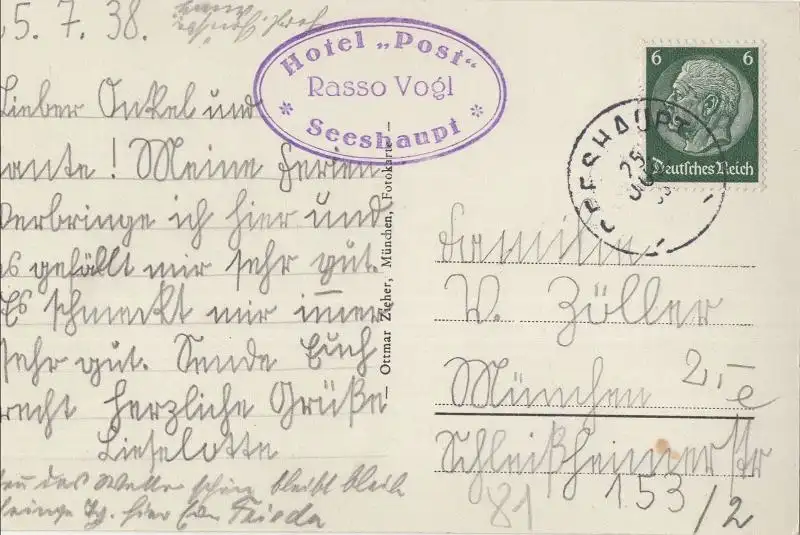 25.7.38.
Hotel „Post“
Rasso Vogl
* Seeshaupt *
Lieber Onkel und
Tante! Meine Ferien
verbringe ich hier und
es gefällt mir sehr gut.
Es schmeckt mir immer
sehr gut. Sende Euch
recht herzliche Grüße
Lieselotte
das Wetter schön bleibt
hier Frieda
— Ottmar Zieher, München, Fotokarte —
6 6
Deutsches Reich
SEESHAUPT
25
Familie
V. Zöller
München
2,- e
Schleißheimerstr
81 153/2